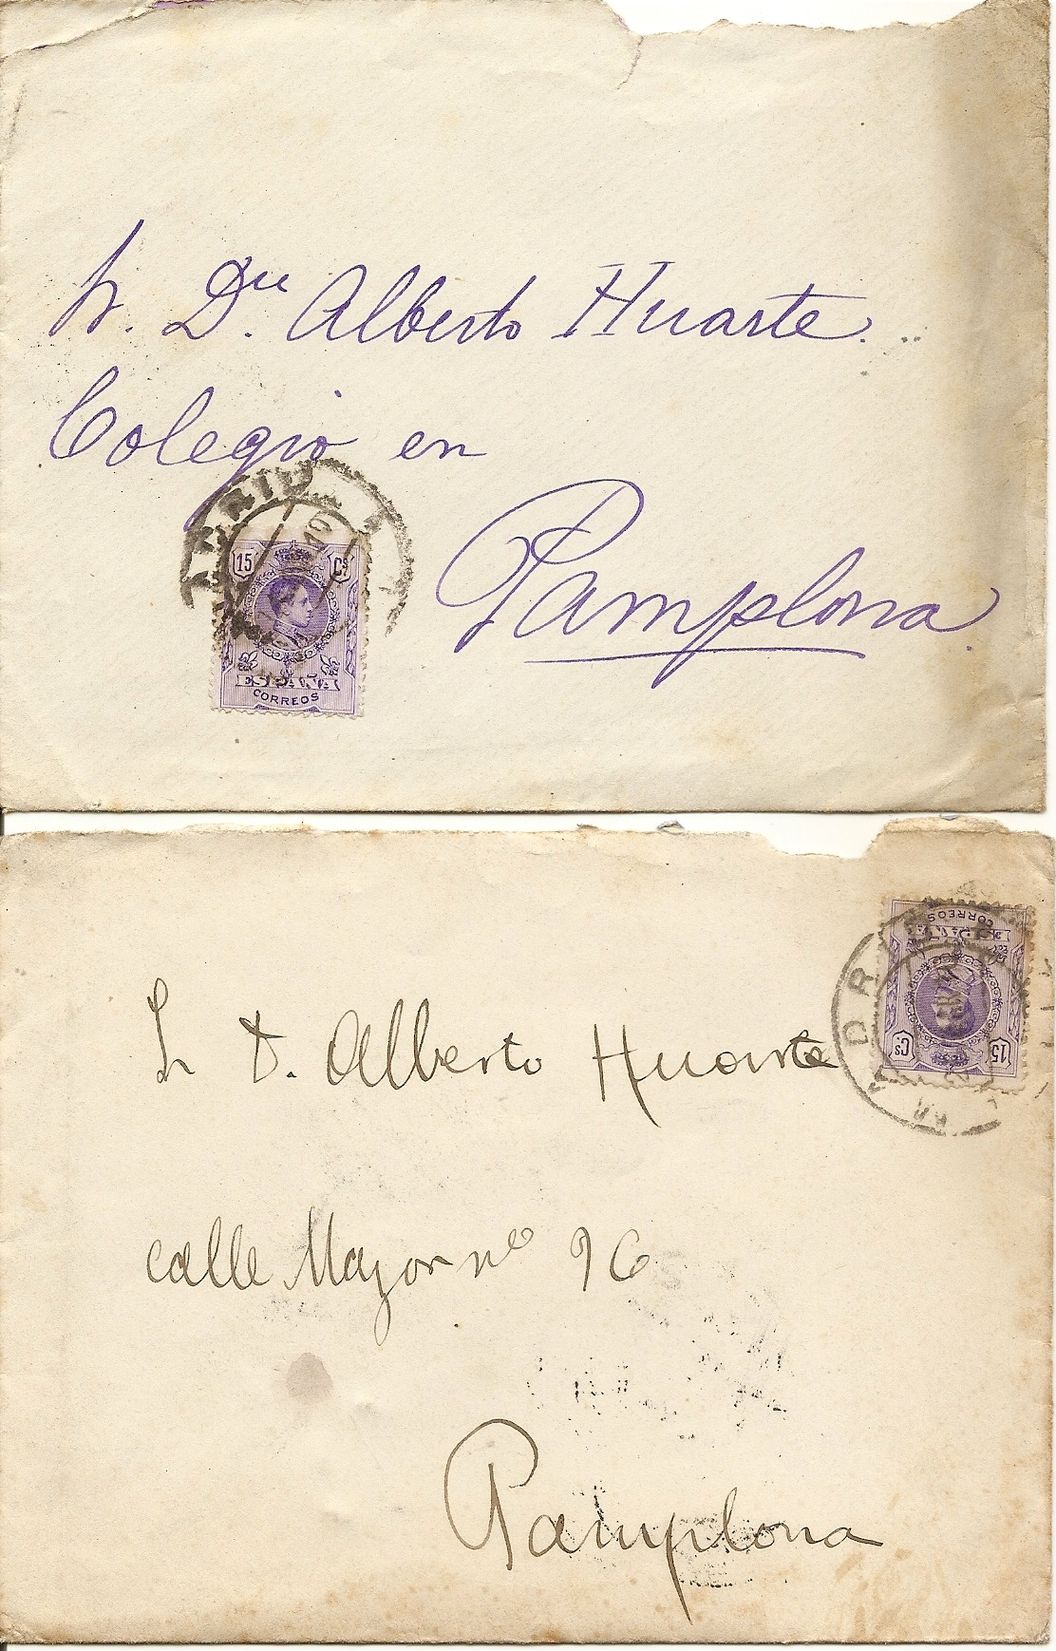 Sr. Dn. Alberto Huarte.
Colegio en
Pamplona
MADRID
15 Cs
ESPAÑA
CORREOS
Sr D. Alberto Huarte
calle Mayor nº 96
Pamplona
MADRID
CORREOS
ESPAÑA
15 Cs